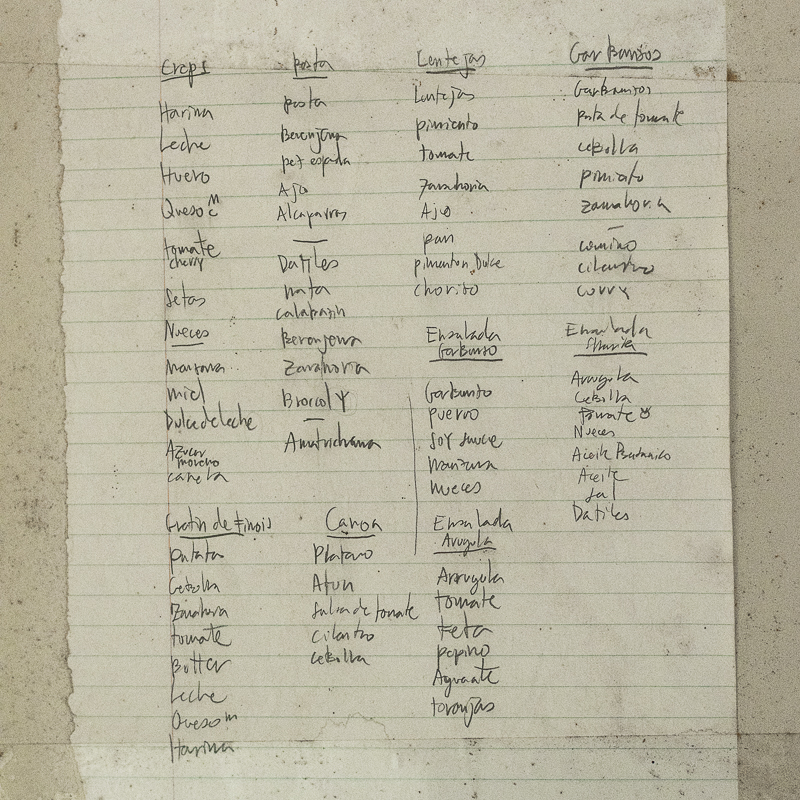 Creps
Harina
Leche
Huevo
Queso M C
tomate
cherry
Setas
Nueces
Manzana
miel
Dulce de leche
Azucar
moreno
canela
Pasta
pasta
Berenjena
pez espada
Ajo
Alcaparras
Datiles
nata
calabazin
Berenjena
Zanahoria
Brocoly
Amatrichana
Lentejas
Lentejas
pimiento
tomate
Zanahoria
Ajo
pan
pimenton Dulce
choriso
GarBansos
GarBansos
pasta de tomate
ceBolla
pimiento
zanahoria
comino
cilantro
curry
Ensalada
GarBanso
GarBanso
puerro
Soy sauce
Manzana
nueces
Ensalada
Arugula
CeBolla
tomate
Nueces
Aceite
Sal
Datiles
Gratin de
patata
CeBolla
Zanahora
tomate
Butter
Leche
Queso m
Harina
Canoa
Platano
Atun
Salsa de tomate
cilantro
ceBolla
Ensalada
Arugula
Arrugula
tomate
Feta
pepino
Aguacate
toronjas